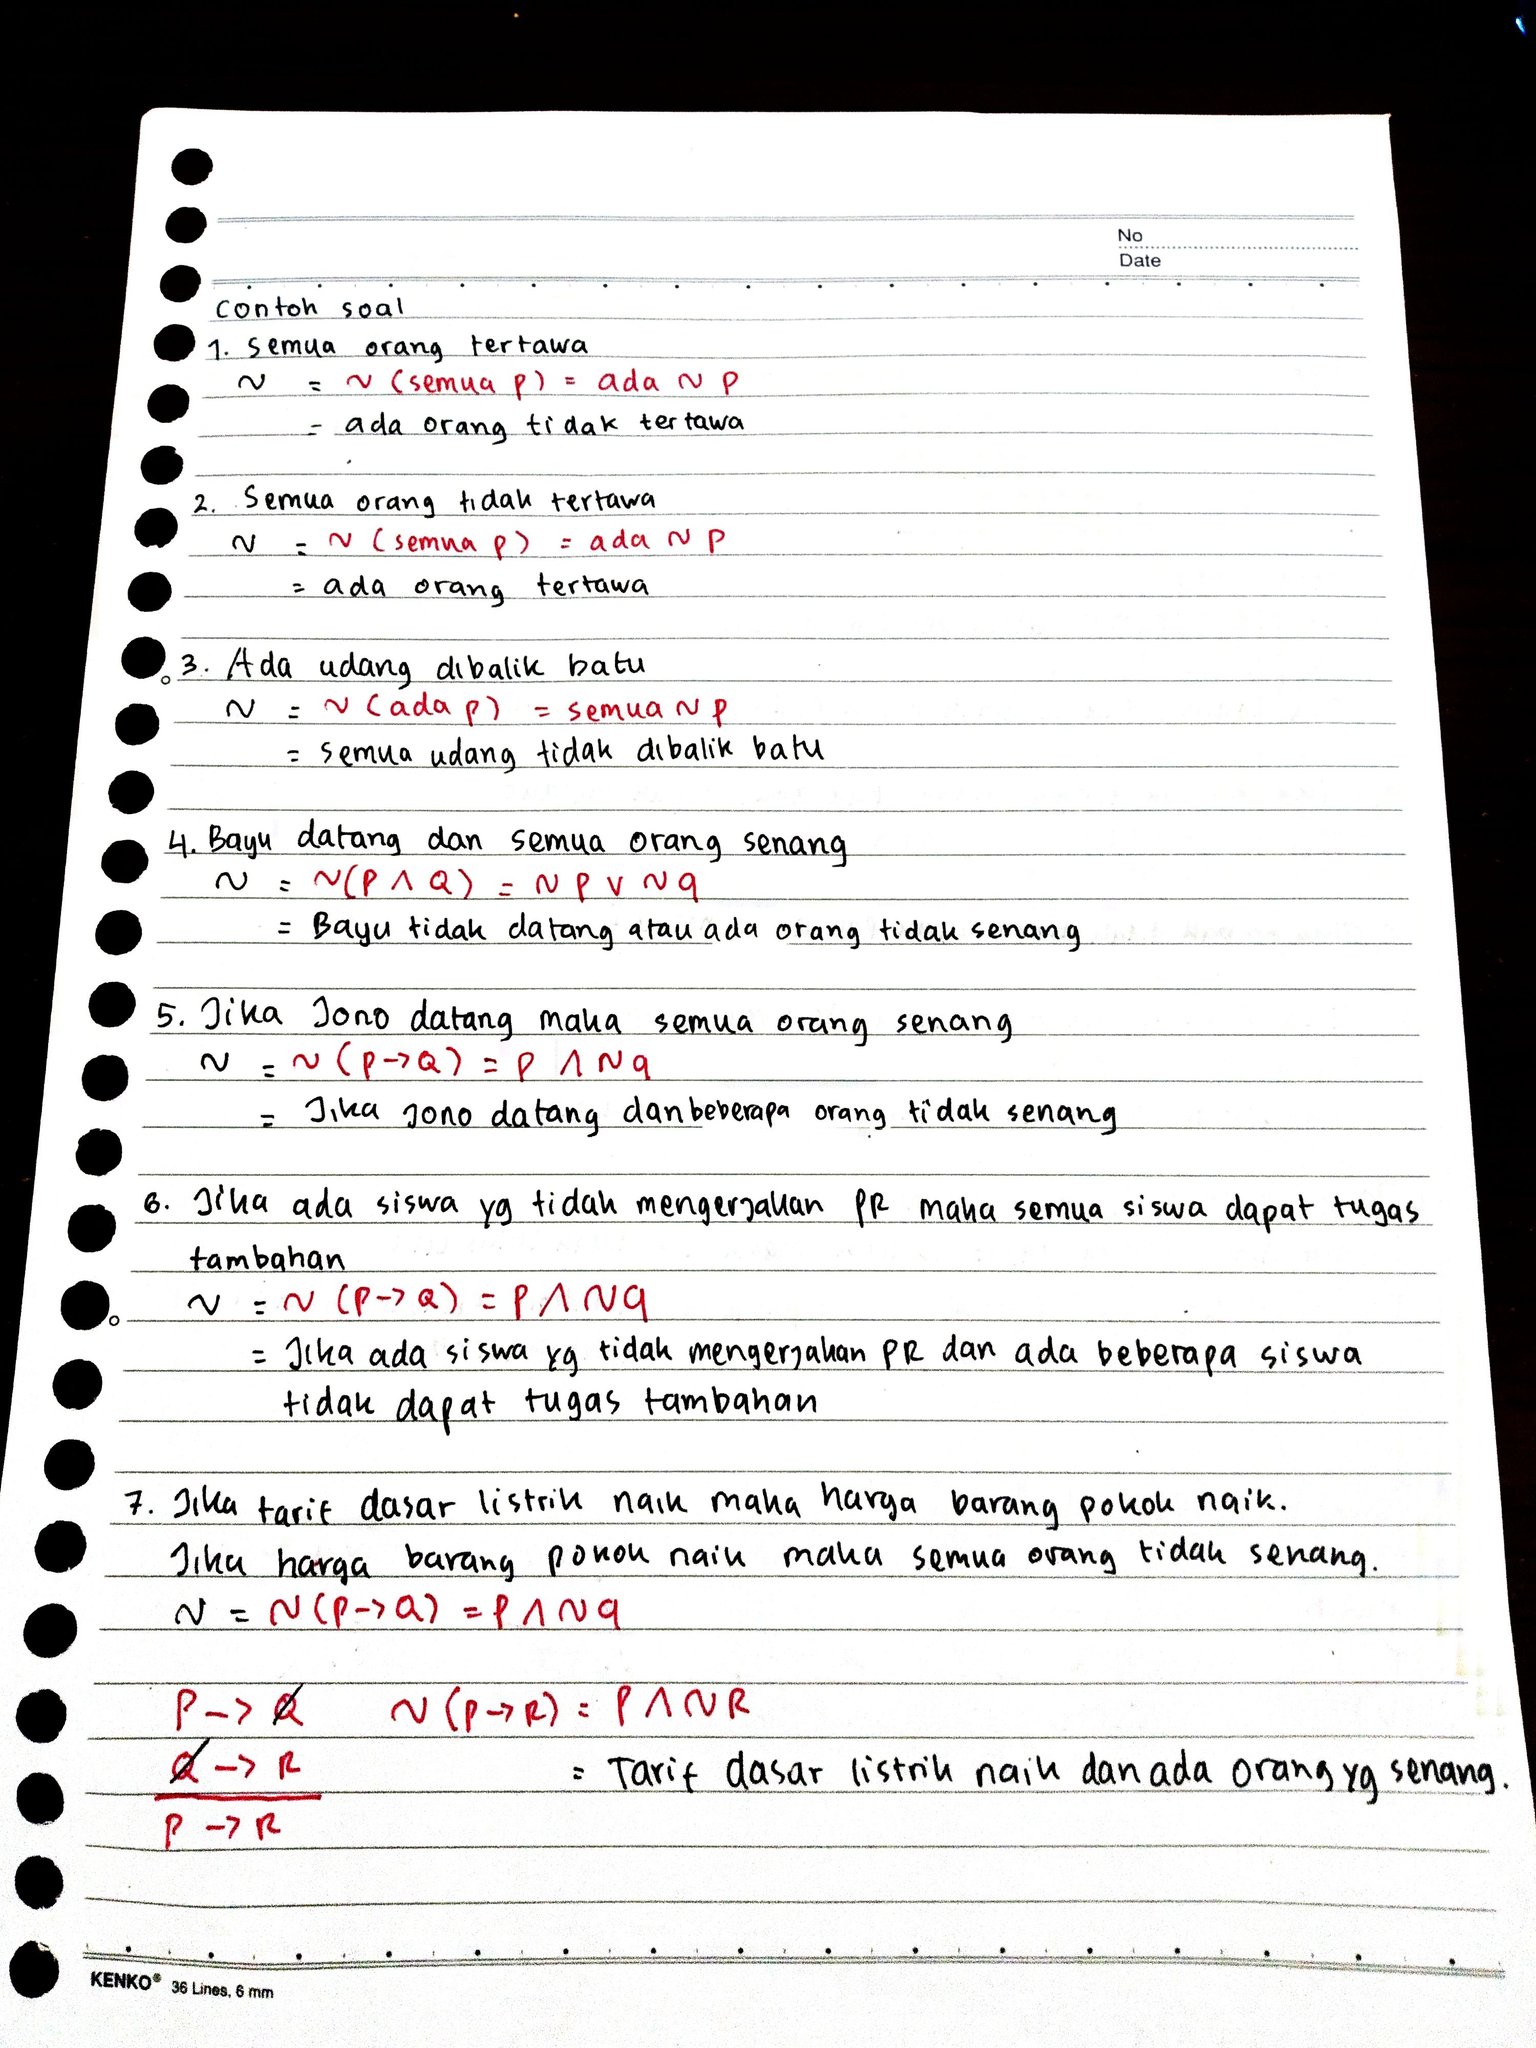 No
Date
Contoh soal
1. Semua orang tertawa
~ = ~ (semua p) = ada ~ p
= ada orang tidak tertawa
2. Semua orang tidak tertawa
~ = ~ (semua p) = ada ~ p
= ada orang tertawa
3. Ada udang dibalik batu
~ = ~ (ada p) = semua ~ p
= semua udang tidak dibalik batu
4. Bayu datang dan semua orang senang
~ = ~(P ∧ Q) = ~ P ∨ ~ q
= Bayu tidak datang atau ada orang tidak senang
5. Jika Jono datang maka semua orang senang
~ = ~ (P -> Q) = P ∧ ~ q
= Jika Jono datang dan beberapa orang tidak senang
6. Jika ada siswa yg tidak mengerjakan PR maka semua siswa dapat tugas
tambahan
~ = ~ (P -> Q) = P ∧ ~ q
= Jika ada siswa yg tidak mengerjakan PR dan ada beberapa siswa
tidak dapat tugas tambahan
7. Jika tarif dasar listrik naik maka harga barang pokok naik.
Jika harga barang pokok naik maka semua orang tidak senang.
~ = ~ (P -> Q) = P ∧ ~ q
P -> Q ~ (P -> R) = P ∧ ~ R
Q -> R = Tarif dasar listrik naik dan ada orang yg senang.
P -> R
KENKO® 36 Lines, 6 mm